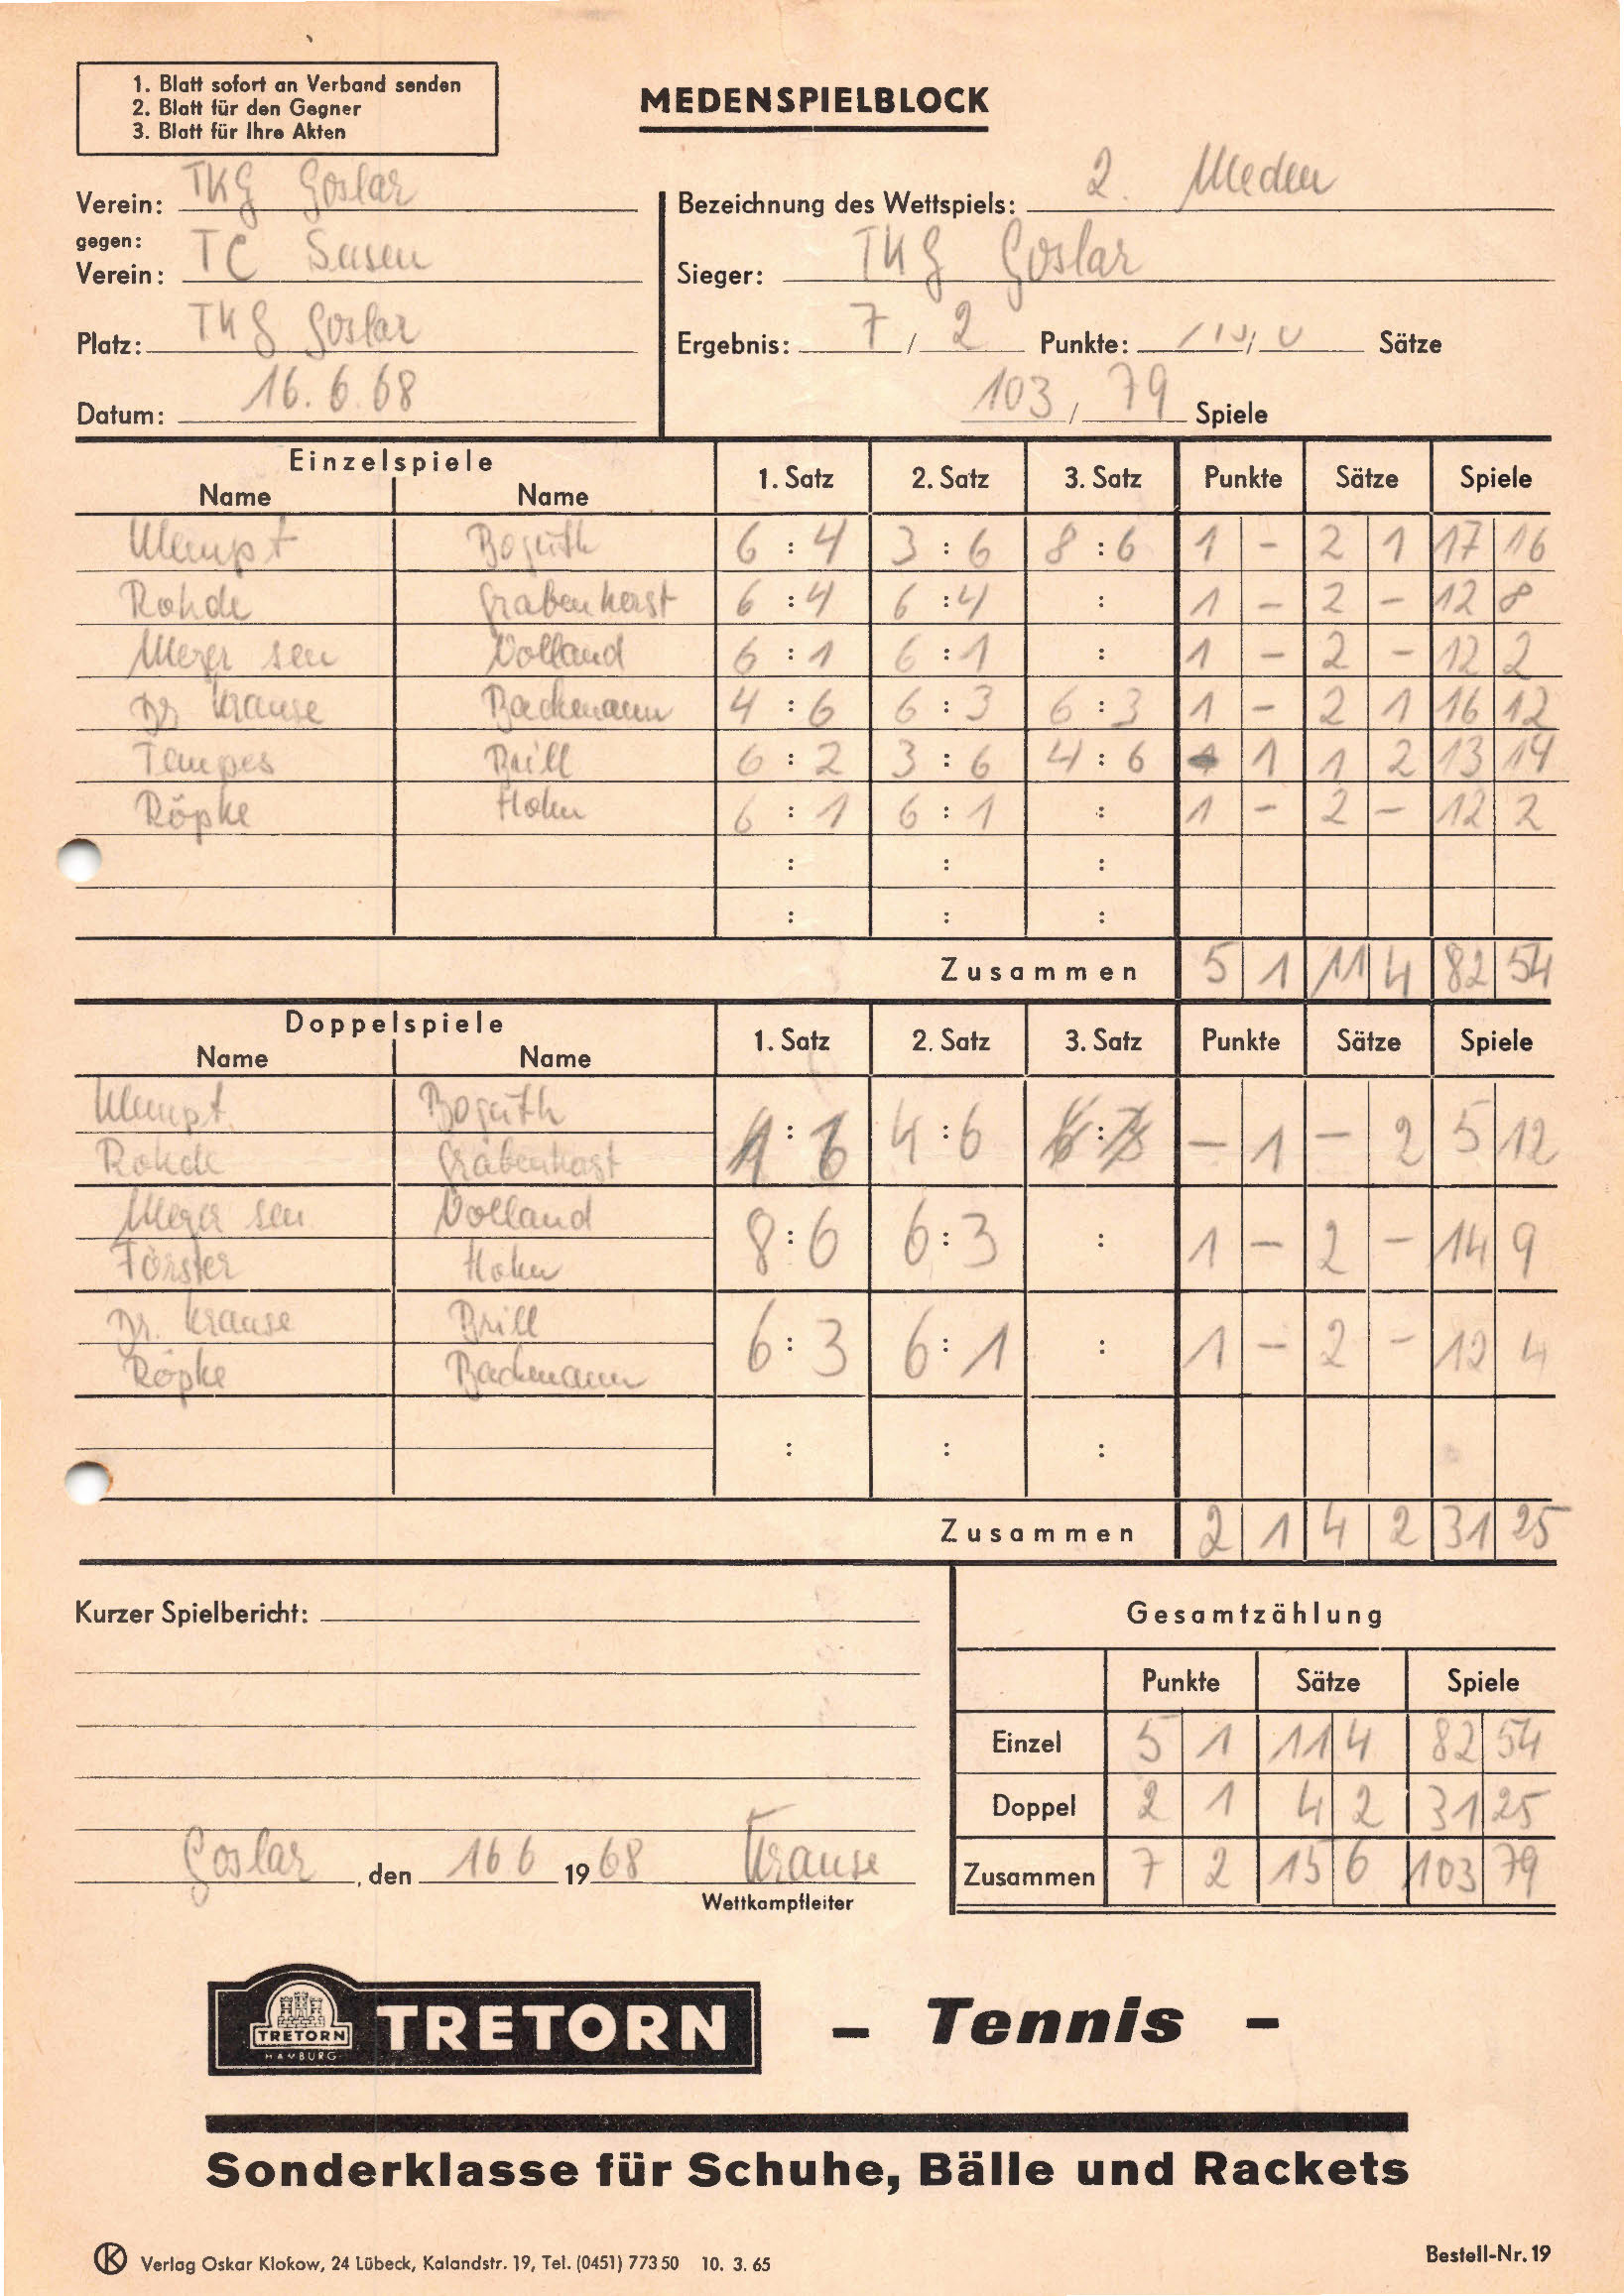 1. Blatt sofort an Verband senden
2. Blatt für den Gegner
3. Blatt für Ihre Akten
MEDENSPIELBLOCK
Verein: TKG Goslar
gegen:
Verein: TC Seesen
Platz: TKG Goslar
Datum: 16.6.68
Bezeichnung des Wettspiels: 2. Meden
Sieger: TKG Goslar
Ergebnis: 7 / 2 Punkte: / Sätze
103 / 79 Spiele
Einzelspiele
Name Name 1. Satz 2. Satz 3. Satz Punkte Sätze Spiele
Klempt Boguth 6 : 4 3 : 6 8 : 6 1 - 2 1 17 16
Rohde Grabenhorst 6 : 4 6 : 4 : 1 - 2 - 12 8
Meyer sen Volland 6 : 1 6 : 1 : 1 - 2 - 12 2
Dr Krause Backmann 4 : 6 6 : 3 6 : 3 1 - 2 1 16 12
Tempes Brill 6 : 2 3 : 6 4 : 6 - 1 1 2 13 14
Röpke Hohn 6 : 1 6 : 1 : 1 - 2 - 12 2
: : :
: : :
Zusammen 5 1 11 4 82 54
Doppelspiele
Name Name 1. Satz 2. Satz 3. Satz Punkte Sätze Spiele
Klempt Boguth
Rohde Grabenhorst 1 : 6 4 : 6 : - 1 - 2 5 12
Meyer sen Volland
Förster Hohn 8 : 6 6 : 3 : 1 - 2 - 14 9
Dr. Krause Brill
Röpke Backmann 6 : 3 6 : 1 : 1 - 2 - 12 4
: : :
Zusammen 2 1 4 2 31 25
Kurzer Spielbericht:
Goslar, den 16 6 1968 Krause
Wettkampfleiter
Gesamtzählung
Punkte Sätze Spiele
Einzel 5 1 11 4 82 54
Doppel 2 1 4 2 31 25
Zusammen 7 2 15 6 103 79
TRETORN
HAMBURG
TRETORN - Tennis -
Sonderklasse für Schuhe, Bälle und Rackets
K Verlag Oskar Klokow, 24 Lübeck, Kalandstr. 19, Tel. (0451) 773 50 10. 3. 65
Bestell-Nr. 19